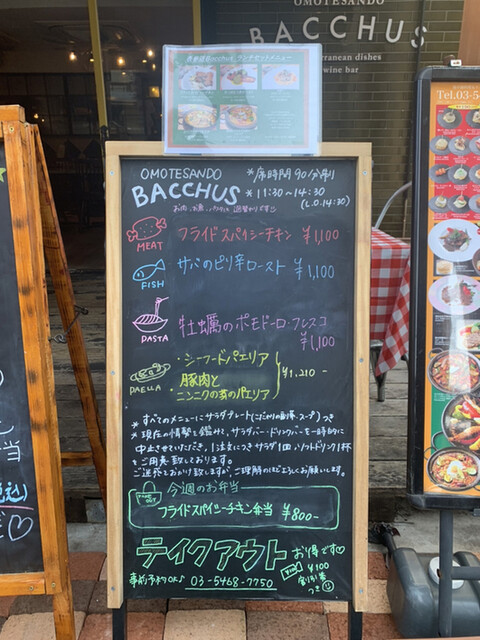 OMOTESANDO
BACCHUS
ranean dishes
wine bar
Tel.03-5
OMOTESANDO
BACCHUS
*席時間90分制
*11:30~14:30
(L.O.14:30)
MEAT
フライドスパイシーチキン ¥1,100
FISH
サバのピリ辛ロースト ¥1,100
PASTA
牡蠣のポモドーロ・フレスコ
¥1,100
PAELLA
・シーフードパエリア
・豚肉と
ニンニクの芽のパエリア
¥1,210-
*すべてのメニューにサラダプレート(こだわりの前菜、スープ)つき
*現在の情勢を鑑みて、サラダバー・ドリンクバーを一時的に
中止させていただき、1注文につきサラダ1皿、ソフトドリンク1杯
をご用意致しております。
ご迷惑をおかけ致しますが、ご理解のほどよろしくお願いします。
TAKE OUT
今週のお弁当
フライドスパイシーチキン弁当 ¥800-
テイクアウト
お得です♡
¥100
割引券
つき
事前予約OK♪ 03-5468-7750